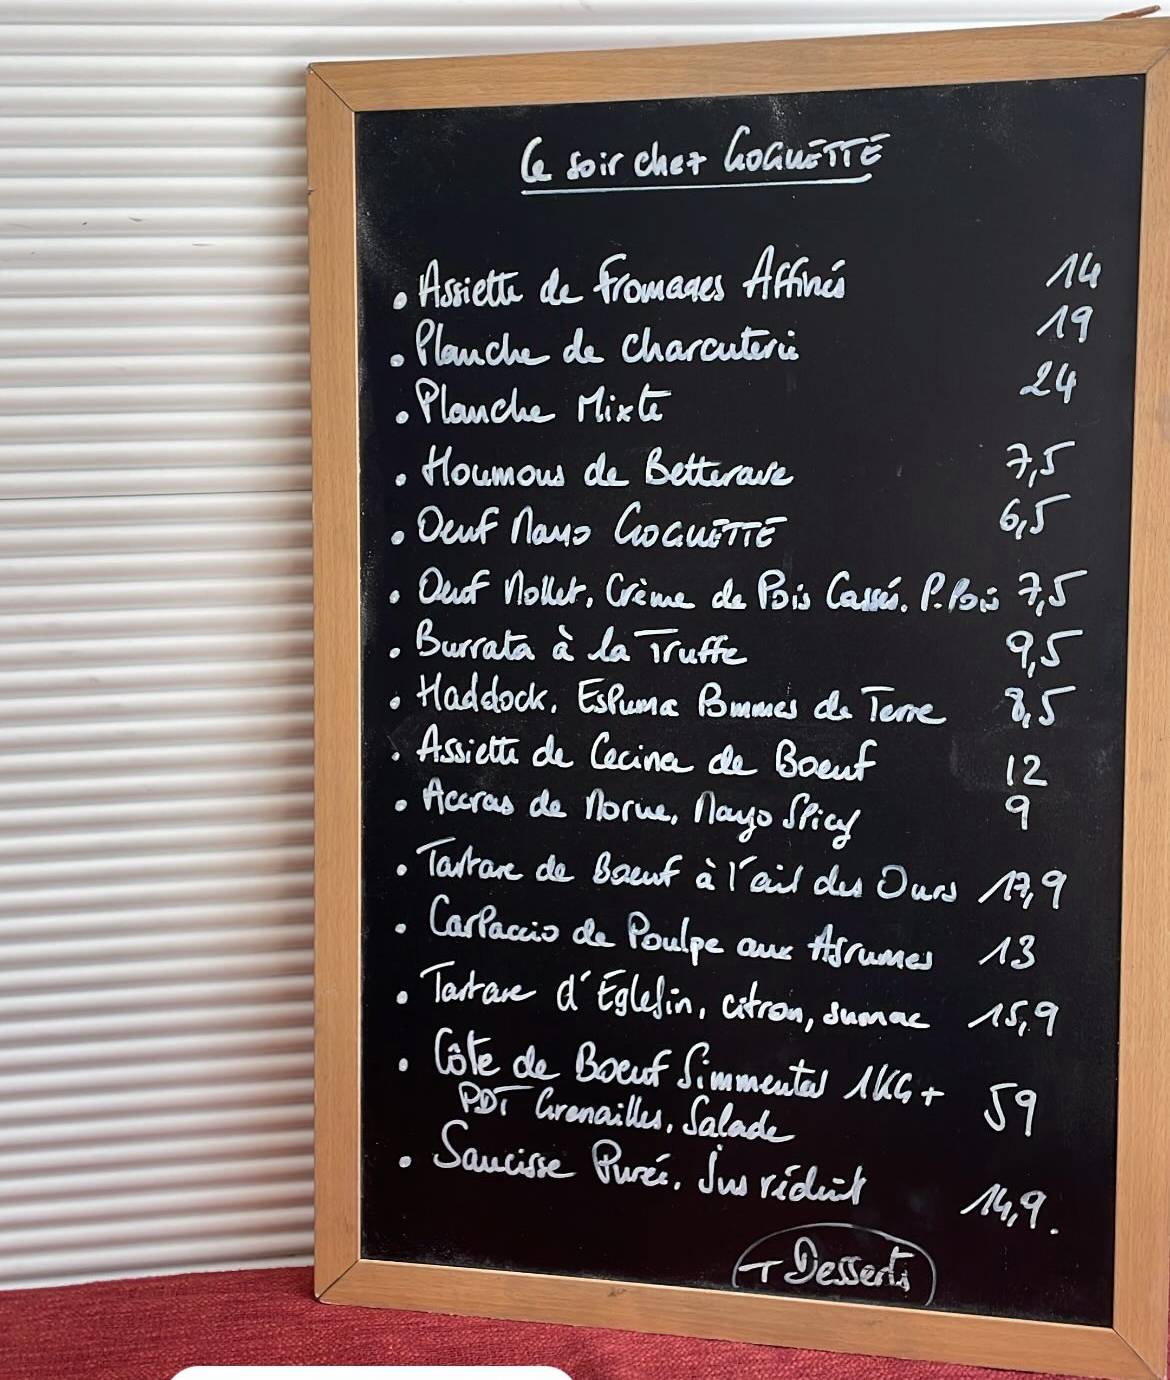 Ce soir chez COQUETTE
• Assiette de Fromages Affinés 14
• Planche de Charcuterie 19
• Planche Mixte 24
• Houmous de Betterave 7,5
• Oeuf Mayo COQUETTE 6,5
• Oeuf Mollet, Crème de Pois Cassés, P. Pois 7,5
• Burrata à la Truffe 9,5
• Haddock, Espuma Pommes de Terre 8,5
• Assiette de Cecina de Boeuf 12
• Accras de Morue, Mayo Spicy 9
• Tartare de Boeuf à l'ail des Ours 17,9
• Carpaccio de Poulpe aux Agrumes 13
• Tartare d'Eglefin, citron, sumac 15,9
• Côte de Boeuf Simmental 1KG + 59
PDT Grenailles, Salade
• Saucisse Purée, Jus réduit 14,9.
+ Desserts